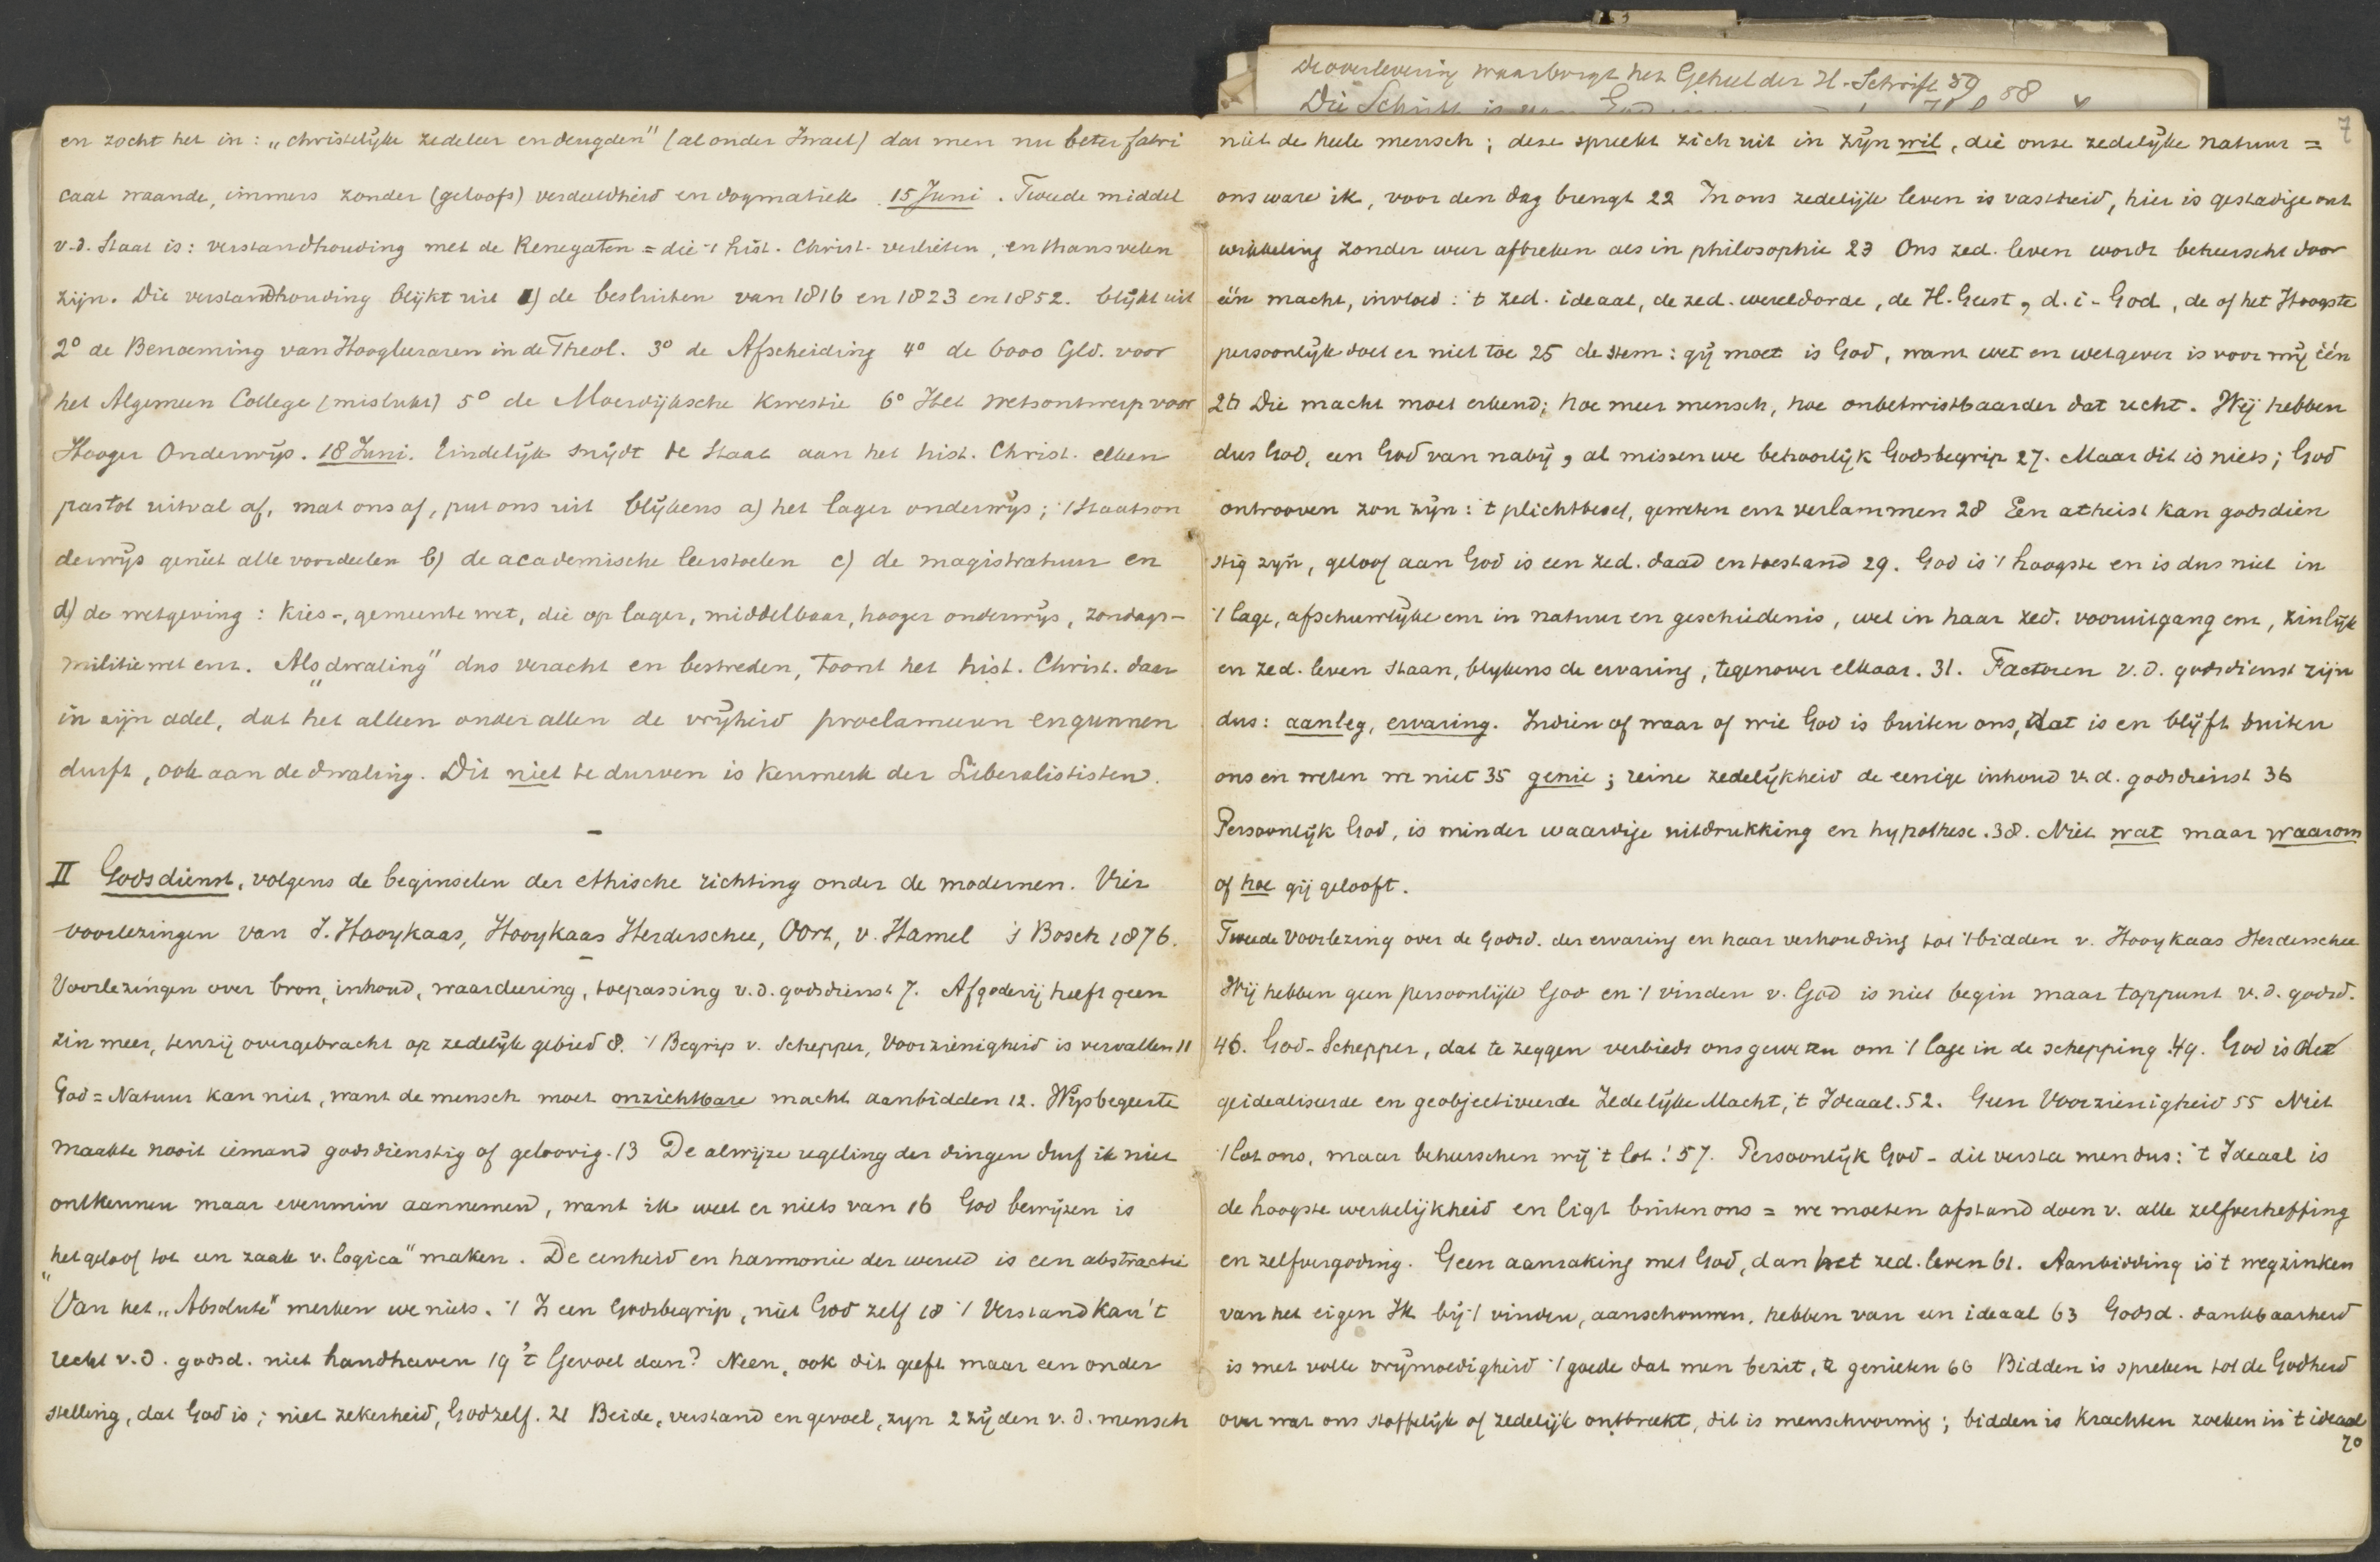 en zocht het in: „christelijke zedeleer en deugden" (al onder Israel) dat men nu beter fabri
caat waande, immers zonder (geloofs) verdeeldheid en dogmatiek. 15 Juni. Tweede middel
v.d. Staat is: verstandhouding met de Renegaten = die 't hist. Christ. verlieten, en thans velen
zijn. Die verstandhouding blijkt uit 1) de besluiten van 1816 en 1823 en 1852. blijkt uit
2° de Benoeming van Hoogleraren in de Theol. 3° de Afscheiding 4° de 6000 Gld. voor
het Algemeen College (mislukt) 5° de Moerdijksche kwestie 6° Het wetsontwerp voor
Hooger Onderwijs. 18 Juni. Eindelijk snijdt de Staat aan het hist. Christ. elken
pas tot uitval af, mat ons af, put ons uit blijkens a) het lager onderwijs; 't Staatson
derwijs geniet alle voordeelen b) de academische leerstoelen c) de magistratuur en
d) de wetgeving: Kies-, gemeente wet, die op lager, middelbaar, hooger onderwijs, zondags-
militiewet enz. Als „dwaling" dus veracht en bestreden, toont het hist. Christ. daar
in zijn adel, dat het alleen onder allen de vrijheid proclameeren en gunnen
durft, ook aan de dwaling. Dit niet te durven is kenmerk der Liberalististen.
II Godsdienst, volgens de beginselen der ethische richting onder de modernen. Vier
voorlezingen van J. Hooykaas, Hooykaas Herderschee, Oort, v. Hamel 's Bosch 1876.
Voorlezingen over bron, inhoud, waardeering, toepassing v.d. godsdienst 7. Afgoderij heeft geen
zin meer, tenzij overgebracht op zedelijk gebied 8. 't Begrip v. Schepper, Voorzienigheid is vervallen 11
God = Natuur kan niet, want de mensch moet onzichtbare macht aanbidden 12. Wijsbegeerte
maakte nooit iemand godsdienstig of geloovig. 13 De alwijze regeling der dingen durf ik niet
ontkennen maar evenmin aannemend, want ik weet er niets van 16 God bewijzen is
„het geloof tot een zaak v. logica" maken. De eenheid en harmonie der wereld is een abstractie
Van het „Absolute" merken we niets. 't Is een Godsbegrip, niet God zelf 18 't Verstand kan 't
recht v.d. godsd. niet handhaven 19 't Gevoel dan? Neen, ook dit geeft maar een onder
stelling, dat God is; niet zekerheid, God zelf. 21 Beide, verstand en gevoel, zijn 2 zijden v.d. mensch
De overlevering waarborgt het Geheel der H. Schrift 59 58
Die Schrift is
7
niet de heele mensch; deze spreekt zich uit in zijn wil, die onze zedelijke natuur =
ons ware ik, voor den dag brengt 22 In ons zedelijk leven is vastheid, hier is gestadige ont
wikkeling zonder weer afbreken als in philosophie 23 Ons zed. leven wordt beheerscht door
één macht, invloed: 't zed. ideaal, de zed. wereldorde, de H. Geest, d.i. God, de of het Hoogste
persoonlijk doet er niet toe 25 de stem: gij moet is God, want wet en wetgever is voor mij één
26 Die macht moet erkend; hoe meer mensch, hoe onbetwistbaarder dat recht. Wij hebben
dus God, een God van nabij, al missen we behoorlijk Godsbegrip 27. Maar dit is niets; God
ontrooven zou zijn: 't plichtbesef, geweten enz verlammen 28 Een atheist kan godsdien
stig zijn, geloof aan God is een zed. daad en toestand 29. God is 't hoogste en is dus niet in
't lage, afschuwelijke enz in natuur en geschiedenis, wel in haar zed. vooruitgang enz, zinlijk
en zed. leven staan, blijkens de ervaring, tegenover elkaar. 31. Factoren v.d. godsdienst zijn
dus: aanleg, ervaring. Indien of waar of wie God is buiten ons, dat is en blijft buiten
ons en weten we niet 35 genie; reine zedelijkheid de eenige inhoud v.d. godsdienst 36
Persoonlijk God, is minder waardige uitdrukking en hypothese. 38. Niet wat maar waarom
of hoe gij gelooft.
Tweede Voorlezing over de Godsd. der ervaring en haar verhouding tot 't bidden v. Hooykaas Herderschee
Wij hebben geen persoonlijk God en 't vinden v. God is niet begin maar toppunt v.d. godsd.
46. God-Schepper, dat te zeggen verbiedt ons geweten om 't lage in de schepping 49. God is de
geidealiseerde en geobjectiveerde Zedelijke Macht, 't Ideaal. 52. Geen Voorzienigheid 55 Niet
't lot ons, maar beheerschen wij 't lot! 57. Persoonlijk God - dit versta men dus: 't Ideaal is
de hoogste werkelijkheid en ligt buiten ons = we moeten afstand doen v. alle zelfverheffing
en zelfvergoding. Geen aanraking met God, dan het zed. leven 61. Aanbidding is 't wegzinken
van het eigen Ik bij 't vinden, aanschouwen, hebben van een ideaal 63 Godsd. dankbaarheid
is met volle vrijmoedigheid 't goede dat men bezit, te genieten 66 Bidden is spreken tot de Godheid
over wat ons stoffelijk of zedelijk ontbreekt, dit is menschvormig; bidden is krachten zoeken in 't ideaal
70